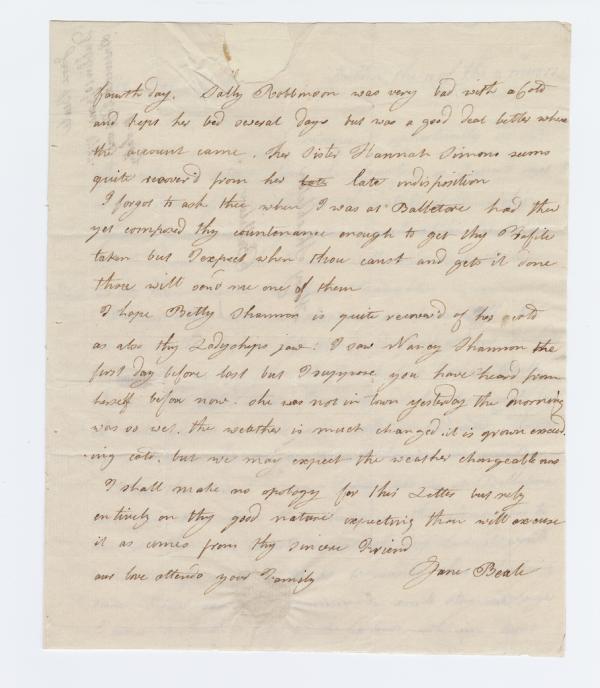 fourth day. Sally Robbinson was very bad with a Cold
and kept her bed several days but was a good deal better when
the account came. her Sister Hannah Simons seems
quite recover'd from her late indisposition
I forgot to ask thee when I was at Balletore had thee
yet composed thy countenance enough to get thy Profile
taken but I expect when thou canst and gets it done
thou will send me one of them
I hope Betty Shannon is quite recover'd of her cold
as also thy Ladyships jaw: I saw Nancy Shannon the
first day before last but I suppose you have heard from
herself before now. she was not in town yesterday the morning
was so wet. the weather is much changed it is grown exceed
ing cold. but we may expect the weather changeable now
I shall make no apology for this Letter but rely
entirely on thy good nature expecting thou will excuse
it as comes from thy sincere Friend
our love attends your Family Jane Beale